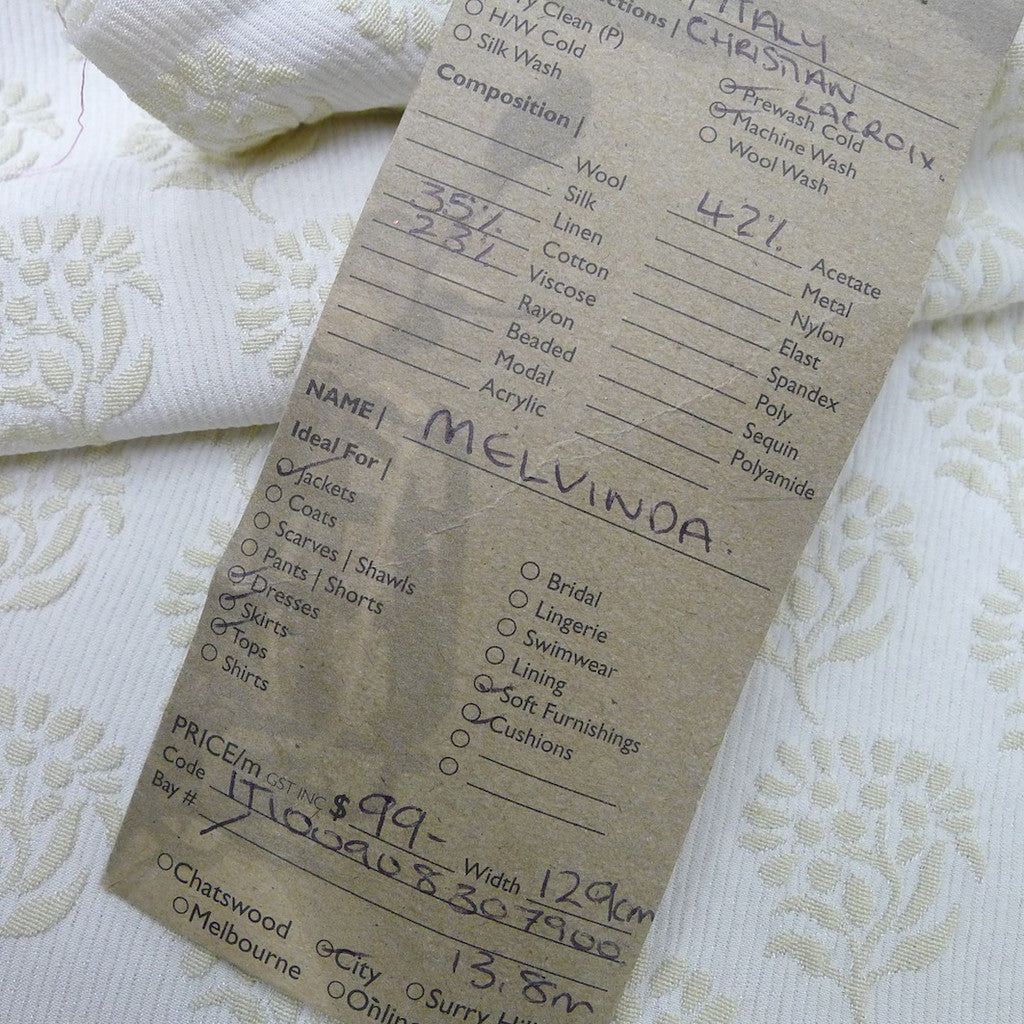 ITALY
Dry Clean (P)
H/W Cold
Silk Wash
CHRISTIAN
LACROIX.
Prewash Cold
Machine Wash
Wool Wash
Composition |
Wool
Silk
Linen
35% Cotton
23% Viscose
Rayon
Beaded
Modal
Acrylic
42% Acetate
Metal
Nylon
Elast
Spandex
Poly
Sequin
Polyamide
NAME | MELVINDA.
Ideal For |
Jackets
Coats
Scarves | Shawls
Pants | Shorts
Dresses
Skirts
Tops
Shirts
Bridal
Lingerie
Swimwear
Lining
Soft Furnishings
Cushions
PRICE/m GST INC $ 99- Width 129cm
Code IT100908307900
Bay #
13.8m
Chatswood
City
Melbourne